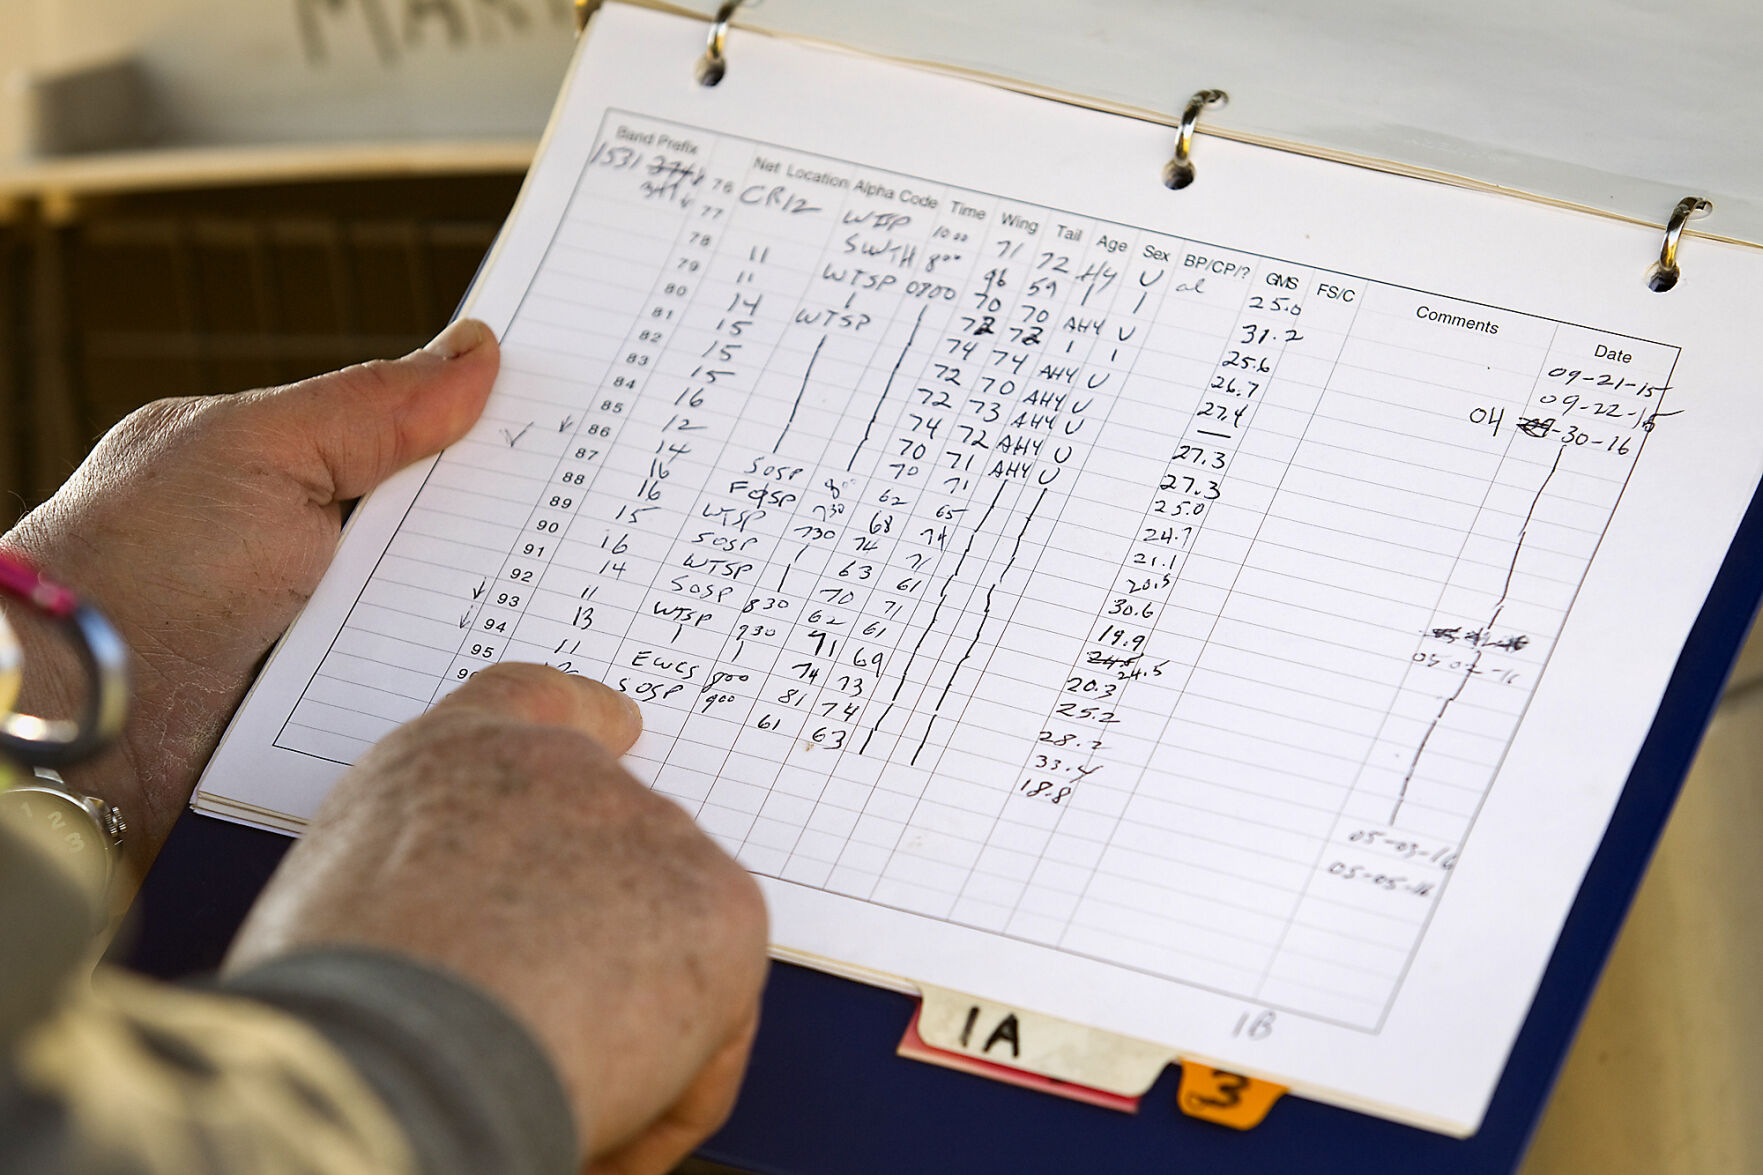 MAR
Band Prefix Net Location Alpha Code Time Wing Tail Age Sex BP/CP/? GMS FS/C Comments Date
1531 76 CR12 WTSP 1000 71 72 HY U cl 25.0 09-21-15
77 SWTH 800 96 59 | | 31.2 09-22-15
78 11 WTSP 0700 70 70 AHY U 25.6 04 -30-16
79 11 | 72 72 | | 26.7
80 14 WTSP 74 74 AHY U 27.4
81 15 72 70 AHY U —
82 15 72 73 AHY U 27.3
83 15 74 72 AHY U 27.3
84 16 70 71 AHY U 25.0
85 12 70 71 24.7
86 14 SOSP 800 62 65 21.1
87 16 FOSP 730 68 74 20.5 05-02-16
88 16 WTSP 730 74 71 30.6
89 15 SOSP | 63 61 19.9
90 16 WTSP | 70 71 24.5
91 14 SOSP 830 62 61 20.3
92 11 WTSP 930 71 69 25.2
93 13 | | 74 73 28.2
94 11 EWCS 800 81 74 33.4 05-03-16
95 SOSP 900 61 63 18.8 05-05-16
1B
1A
3